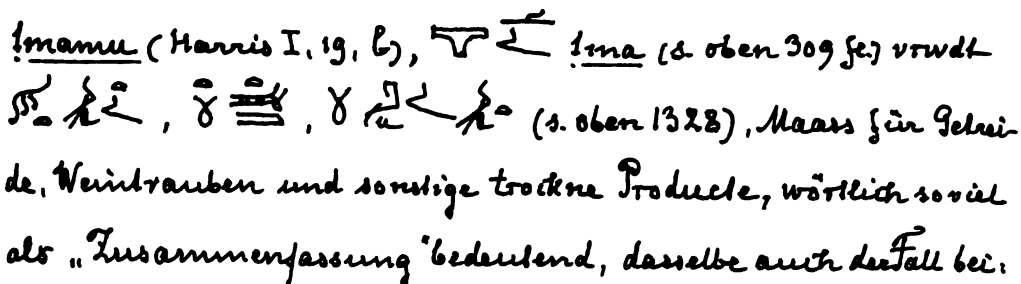 ṭmamu (Harris I, 19, b), ṭma (s. oben 309 fl.) vrwdt
, , (s. oben 1328), Maass für Getrei-
de, Weintrauben und sonstige trockne Producte, wörtlich soviel
als „Zusammenfassung“ bedeutend, dasselbe auch der Fall bei: